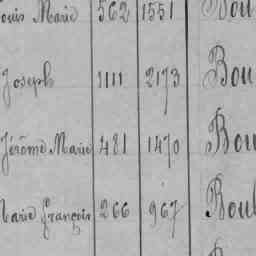 ouis Marie 562 1551 Bou
Joseph 1111 2173 Bou
Jérôme Marie 481 1470 Bou
Marie françois 266 967 Boul